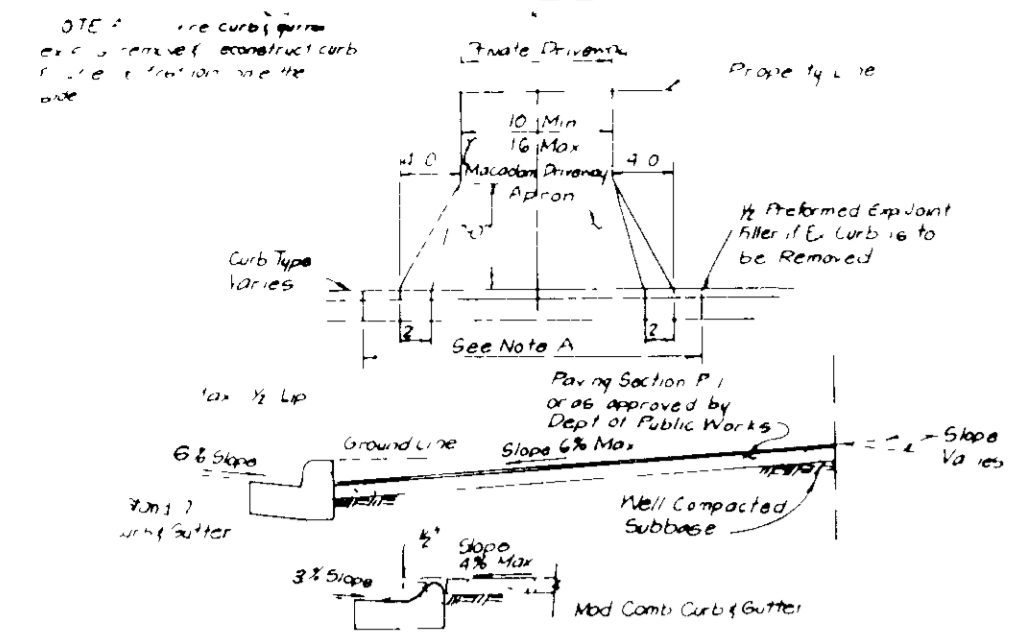 curb &
remove & econstruct curb
the
Private Driveway
Property Line
10 Min
16 Max
4 0
4 0
Macadam Driveway
Apron
½ Preformed Exp Joint
Filler if Ex Curb is to
be Removed
Curb Type
Varies
2
2
See Note A
Max ½ Lip
Paving Section P 1
or as approved by
Dept of Public Works
6% Slope
Ground Line
Slope 6% Max
Slope
Varies
Gutter
Well Compacted
Subbase
½"
Slope
4% Max
3% Slope
Mod Comb Curb & Gutter